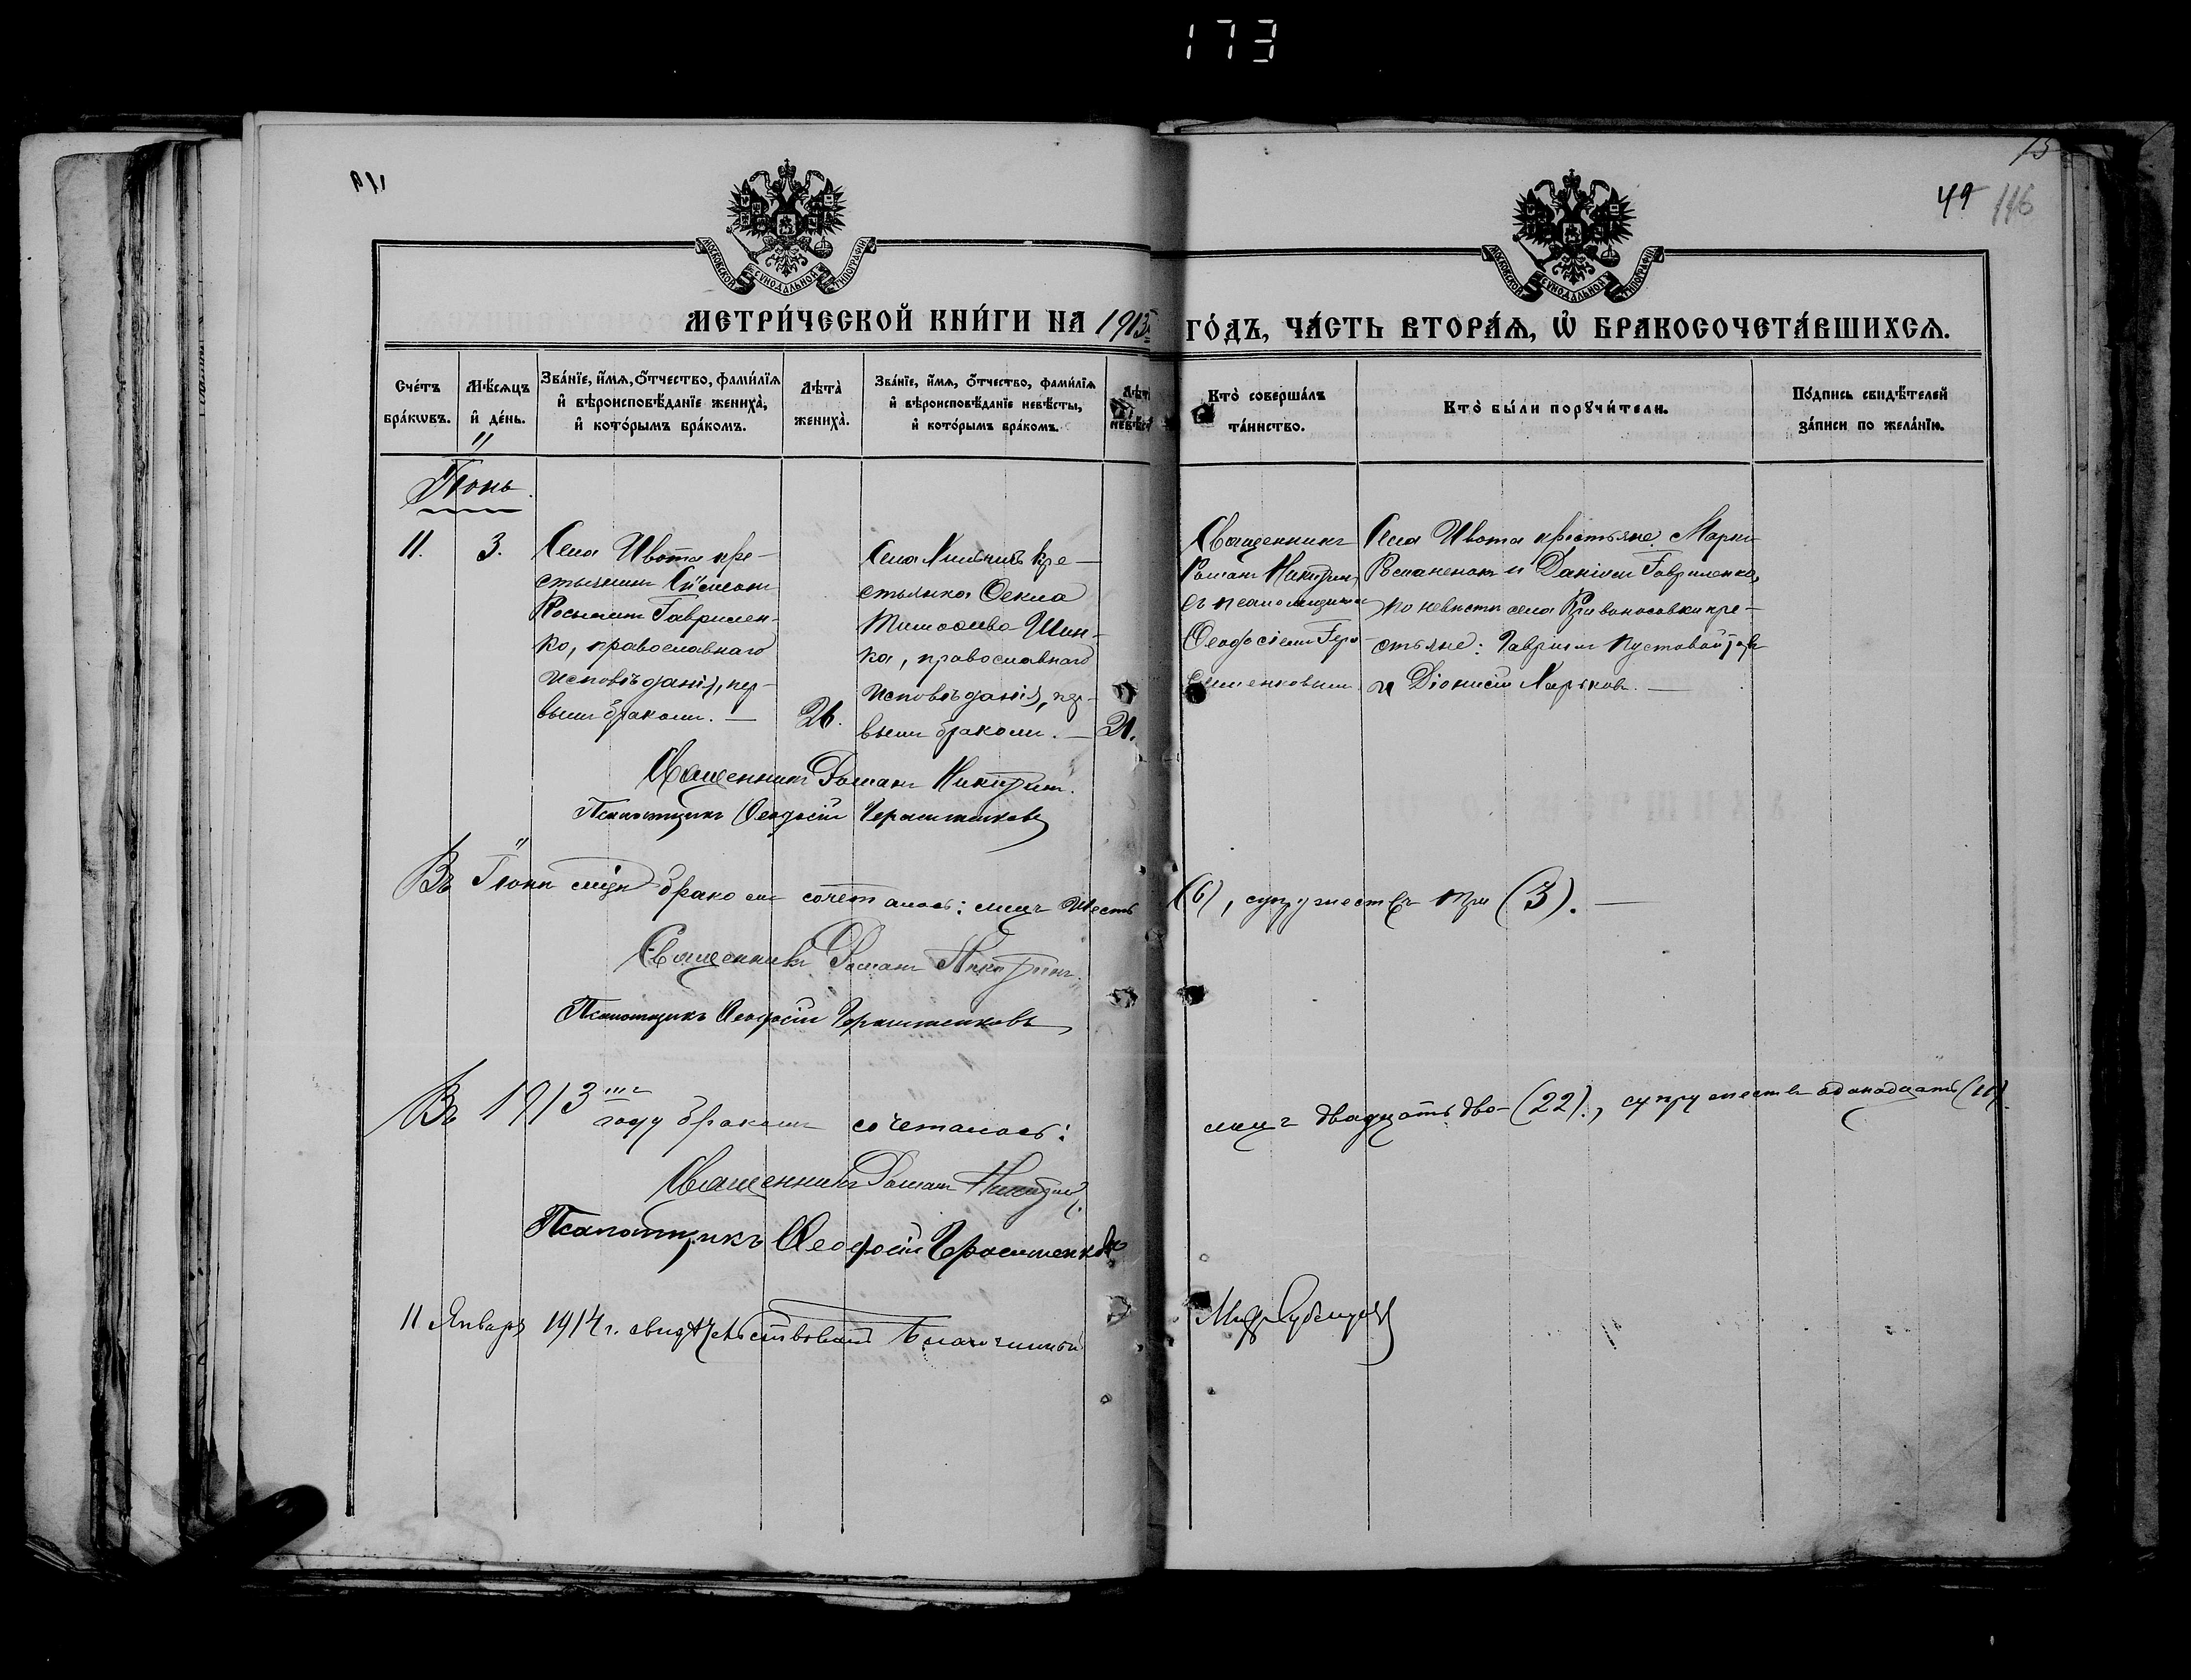 173
15
49 116
МОСКОВСКОЙ СѴНОДАЛЬНОЙ ТИПОГРАФІИ
МОСКОВСКОЙ СѴНОДАЛЬНОЙ ТИПОГРАФІИ
МЕТРИ́ЧЕСКОЙ КНИ́ГИ НА 1913 ГО́ДЪ, ЧА́СТЬ ВТОРА́Ѧ, Ѽ БРАКОСОЧЕТА́ВШИХСѦ.
Сче́тъ бра́кѡвъ.
Мѣ́сяцъ и҆ де́нь.
Зва́нїе, и҆́мѧ, ѻ҆́тчество, фами́лїѧ
и҆ вѣроисповѣ́данїе жениха̀,
и҆ кото́рымъ бра́комъ.
Лѣта̀ жениха̀.
Зва́нїе, и҆́мѧ, ѻ҆́тчество, фами́лїѧ
и҆ вѣроисповѣ́данїе невѣ́сты,
и҆ кото́рымъ бра́комъ.
Кто̀ соверша́лъ
та́инство.
Кто̀ бы́ли порꙋчи́тели.
По́дпись свидѣ́телей
за́писи по жела́нїю.
Іюнь
11.
3.
Села Ивота кре-
стьянинъ
Гаврилен-
ко, православнаго
исповѣданія, пер-
вымъ бракомъ. —
26.
Села кре-
стьянка Ѳекла
Шин-
ка, православнаго
исповѣданія, пер-
вымъ бракомъ. —
21.
Священникъ
Романъ Никитинъ
съ псаломщикомъ
Ѳеодосіемъ Гера-
сименковымъ
Села Ивота крестьяне Марко
Романенокъ и Даніилъ Гавриленко,
по невѣстѣ села Кривоносовки кре-
стьяне: Гавріилъ Пустовойтовъ
и Діонисій Марковъ. —
Священникъ Романъ Никитинъ.
Псаломщикъ Ѳеодосій Герасименковъ
Въ Іюнѣ м-цѣ бракомъ сочеталось: лицъ шесть (6), супружествъ три (3). —
Священникъ Романъ Никитинъ.
Псаломщикъ Ѳеодосій Герасименковъ
Въ 1913 году бракомъ сочеталось: лицъ двадцать два (22), супружествъ одинадцать (11).
Священникъ Романъ Никитинъ.
Псаломщикъ Ѳеодосій Герасименковъ
11 Января 1914 г. свидѣтельствовалъ Благочинный